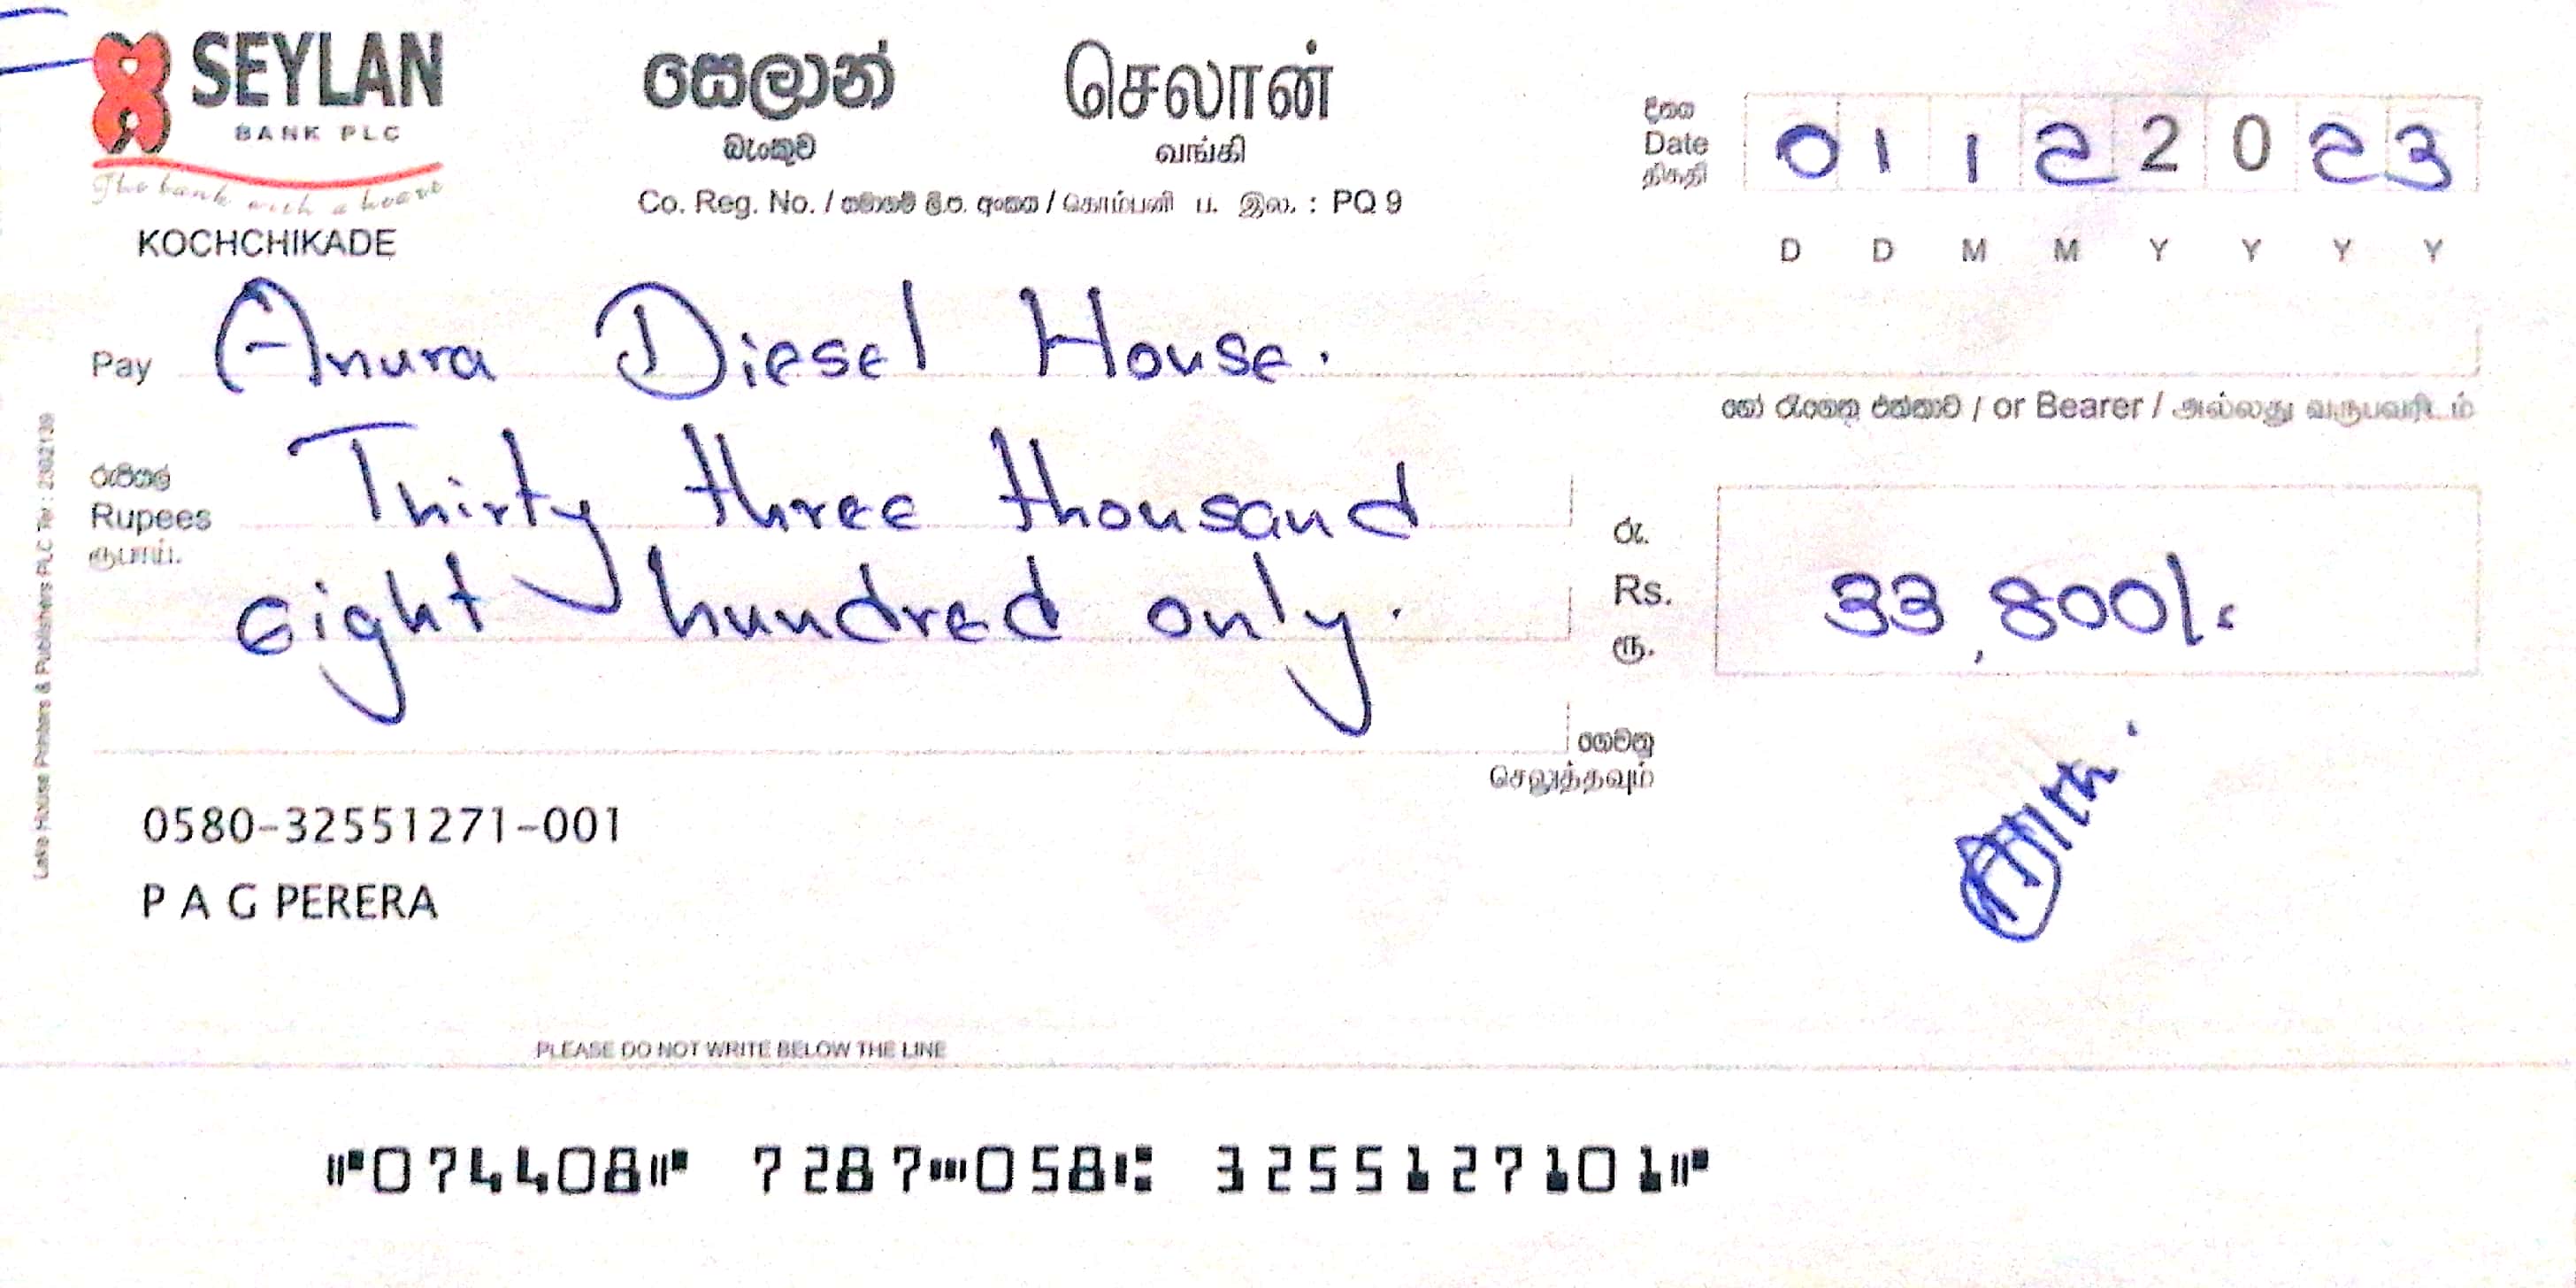 SEYLAN
BANK PLC
The bank with a heart
KOCHCHIKADE
සෙලාන්
බැංකුව
செலான்
வங்கி
Co. Reg. No. / සමාගම් ලි.ප. අංකය / கொம்பனி ப. இல. : PQ 9
දිනය
Date
திகதி
0 1 1 2 2 0 2 3
D D M M Y Y Y Y
Pay Anura Diesel House.
හෝ රැගෙන එන්නාට / or Bearer / அல்லது வருபவரிடம்
රුපියල්
Rupees
ரூபாய்.
Thirty three thousand
eight hundred only.
රු.
Rs.
ரூ.
33,800/-
ගෙවනු
செலுத்தவும்
0580-32551271-001
P A G PERERA
Lake House Printers & Publishers PLC Tel : 2302139
PLEASE DO NOT WRITE BELOW THE LINE
⑈074408⑈ 7287⑉058⑆ 325512710 1⑈